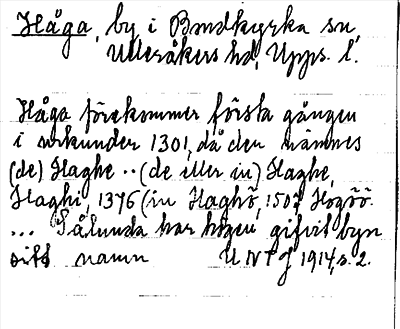 Håga, by i Bondkyrka sn,
Ulleråkers hd, Upps. l.
Håga förekommer första gången
i urkunder 1301, då den nämnes
(de) Haghe ·· (de eller in) Haghe,
Haghi, 1376 (in Haghö, 1507 Högöö.
... Sålunda har högen gifvit byn
sitt namn UNT J 1914, s. 2.